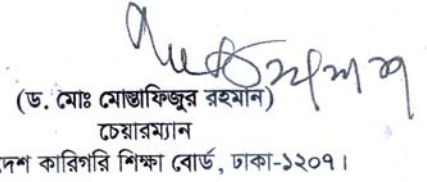 (ড. মোঃ মোস্তাফিজুর রহমান)
চেয়ারম্যান
দেশ কারিগরি শিক্ষা বোর্ড, ঢাকা-১২০৭।